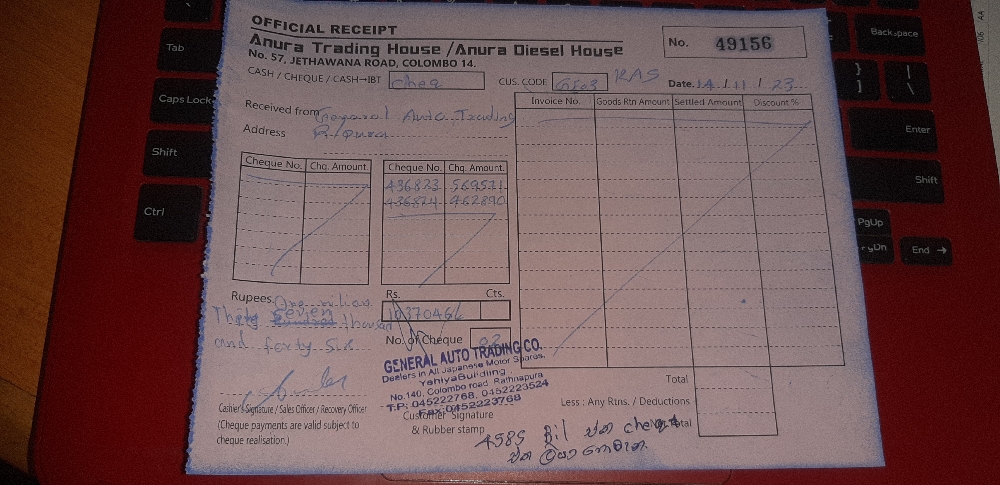 OFFICIAL RECEIPT
Anura Trading House / Anura Diesel House
No. 57, JETHAWANA ROAD, COLOMBO 14.
No. 49156
CASH / CHEQUE / CASH→IBT cheq
CUS. CODE RAS
Date. 14 / 11 / 23
Received from Auto Trading
Address
Invoice No. Goods Rtn Amount Settled Amount Discount %
Cheque No. Chq. Amount. Cheque No. Chq. Amount.
436823
436824 462890
Rupees. One
Thirty Seven thousan
and forty Six
Rs. Cts.
No. of Cheque 02
GENERAL AUTO TRADING CO.
Dealers in All Japanese Motor Spares.
No.140, Colombo road, Rathnapura
T.P: 045222768, 0452223524
Fax: 0452223768
Cashier's Signature / Sales Officer / Recovery Officer
(Cheque payments are valid subject to
cheque realisation.)
Customer Signature
& Rubber stamp
Total
Less : Any Rtns. / Deductions
Net Total
4585 Bil එක
එක